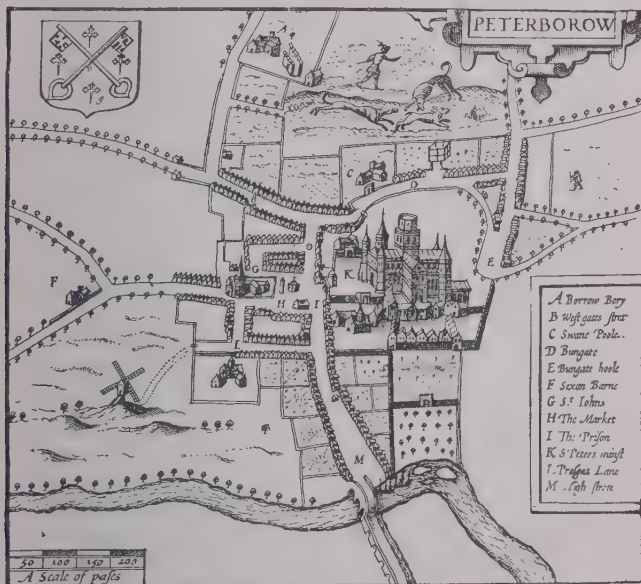 PETERBOROW
A
C
D
E
G
K
F
H
I
L
M
A Borrow Bery
B West gate stret
C Swane Poole
D Bungate
E Bungate hoole
F Sexan Barne
G St Iohns
H The Market
I The Prison
K S Peters minst
L Lane
M High strete
50 100 150 200
A Scale of pases